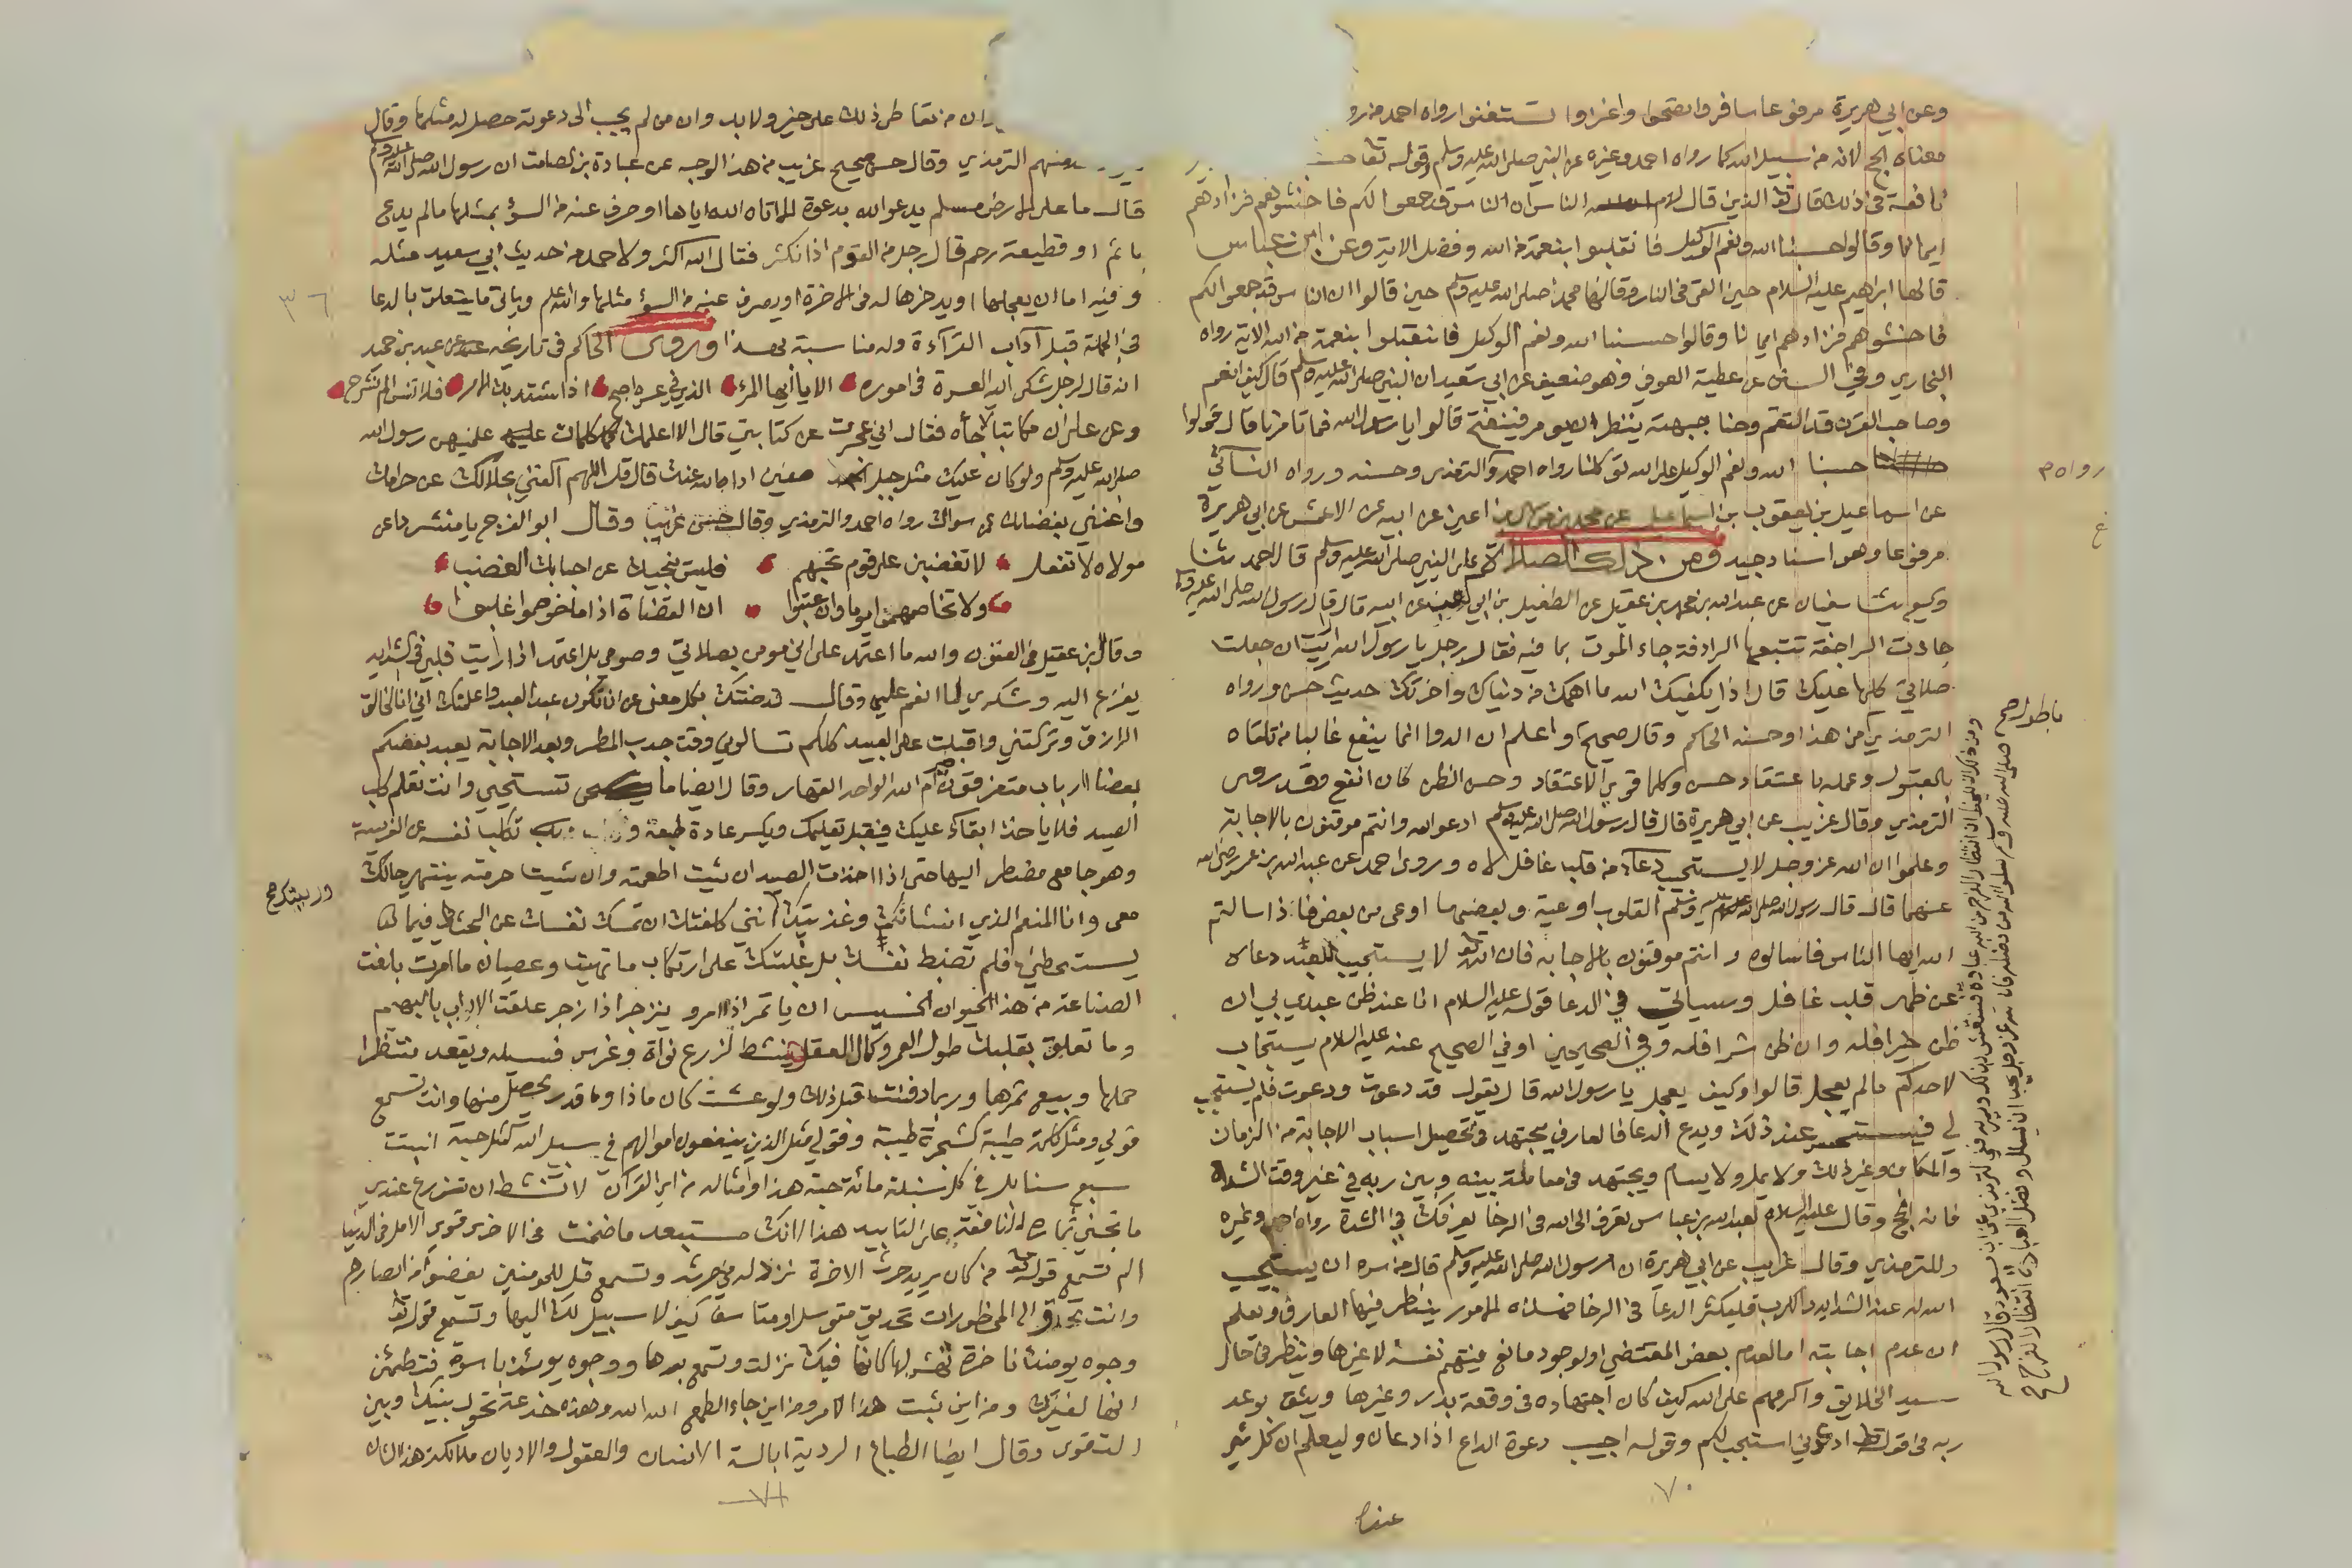 وعن ابي هريرة مرفوعا سافروا تصحوا واغزوا تستغنوا رواه احمد
معناه الحج لانه من سبيل الله كما رواه احمد وغيره عن النبي صلى الله عليه وسلم وقوله تعا
نافعة في ذلك قال تعا الذين قال لهم الناس ان الناس قد جمعوا لكم فاخشوهم فزادهم
ايمانا وقالوا حسبنا الله ونعم الوكيل فانقلبوا بنعمة من الله وفضل الاية وعن ابن عباس
قالها ابراهيم عليه السلام حين القي في النار وقالها محمد صلى الله عليه وسلم حين قالوا ان الناس قد جمعوا لكم
فاخشوهم فزادهم ايمانا وقالوا حسبنا الله ونعم الوكيل فانقلبوا بنعمة من الله الاية رواه
البخاري وفي السنن عن عطية العوفي وهو ضعيف عن ابي سعيد ان النبي صلى الله عليه وسلم قال كيف انعم
وصاحب القرن قد التقم وحنا جبهته ينتظر يومر فينفخ قالوا يا رسول الله فما تامرنا قال قولوا
حسبنا الله ونعم الوكيل على الله توكلنا رواه احمد والترمذي وحسنه ورواه النسائي
عن اسماعيل بن يعقوب بن اسماعيل عن محمد بن موسى بن اعين عن ابيه عن الاعمش عن ابي هريرة
مرفوعا وهو اسناد جيد ومن ذلك الصلاة على النبي صلى الله عليه وسلم قال احمد ثنا
وكيع ثنا سفيان عن عبد الله بن محمد بن عقيل عن الطفيل بن ابي عن ابيه قال قال رسول الله صلى الله عليه وسلم
جاءت الراجفة تتبعها الرادفة جاء الموت بما فيه فقال رجل يا رسول الله ارايت ان جعلت
صلاتي كلها عليك قال اذا يكفيك الله ما اهمك من دنياك واخرتك حديث حسن ورواه
الترمذي من هذا وحسنه الحاكم وقال صحيح واعلم ان الدوا انما ينفع غالبا من تلقاه
بالقبول وعمله باعتقاد حسن وكلما قوي الاعتقاد وحسن الظن كان انفع وقد روى
الترمذي وقال غريب عن ابي هريرة قال قال رسول الله صلى الله عليه وسلم ادعوا الله وانتم موقنون بالاجابة
وعلموا ان الله عز وجل لا يستجيب دعاء من قلب غافل لاه وروى احمد عن عبد الله بن عمر رضي الله
عنهما قال قال رسول الله صلى الله عليه وسلم القلوب اوعية وبعضها اوعى من بعض فاذا سالتم
الله ايها الناس فاسالوه وانتم موقنون بالاجابة فان الله لا يستجيب لعبد دعاه
عن ظهر قلب غافل وسياتي في الدعا قوله عليه السلام انا عند ظن عبدي بي ان
ظن خيرا فله وان ظن شرا فله وفي الصحيحين او في الصحيح عنه عليه السلام يستجاب
لاحدكم مالم يعجل قالوا وكيف يعجل يا رسول الله قال يقول قد دعوت ودعوت فلم يستجب
لي فيستحسر عند ذلك ويدع الدعا فالعارف يجتهد في تحصيل اسباب الاجابة من الزمان
والمكان وغير ذلك ولا يمل ولا يسام ويجتهد في معاملة بينه وبين ربه في غير وقت الشدة
فانه انجح وقال عليه السلام لعبد الله بن عباس تعرف الى الله في الرخا يعرفك في الشدة رواه احمد وغيره
وللترمذي وقال غريب عن ابي هريرة ان رسول الله صلى الله عليه وسلم قال من سره ان يستجيب
الله له عند الشدايد والكرب فليكثر الدعا في الرخا فهذه الامور ينظر فيها العارف ويعلم
ان عدم اجابته اما لعدم بعض المقتضي او لوجود مانع فيتهم نفسه لا غيرها وينظر في حال
سيد الخلايق واكرمهم على الله كيف كان اجتهاده في وقعة بدر وغيرها ويثق بوعد
ربه في قوله ادعوني استجب لكم وقوله اجيب دعوة الداع اذا دعان وليعلم ان كل شي
٧٠
رواه م
غ
ان من تعاطى ذلك على خير ولابد وان من لم يجب الى دعوته حصل له مثلها وقال
منهم الترمذي وقال حسن صحيح غريب من هذا الوجه عن عبادة بن الصامت ان رسول الله صلى الله عليه وسلم
قال ما على الارض مسلم يدعو الله بدعوة الا اتاه الله اياها او صرف عنه من السؤ بمثلها مالم يدع
باثم او قطيعة رحم قال رجل من القوم اذا نكثر فقال الله اكثر ولاحمد من حديث ابي سعيد مثله
وفيه اما ان يعجلها او يدخرها له في الاخرة او يصرف عنه من السؤ مثلها والله اعلم وياتي ما يتعلق بالدعا
في الجملة قبل آداب القرآءة وله مناسبة بهذا وروى الحاكم في تاريخه عن عبد بن حميد
انه قال لرجل شكى اليه العسرة في اموره الا يا ايها المرء الذي في عسره اصبح اذا اشتد بك الامر فلا تنس الم نشرح
وعن علي ان مكاتبا جاه فقال اني عجزت عن كتابتي قال الا اعلمك كلمات علمنيهن رسول الله
صلى الله عليه وسلم ولو كان عليك مثل جبل صفين اداه الله عنك قال قل اللهم اكفني بحلالك عن حرامك
واغنني بفضلك عن سواك رواه احمد والترمذي وقال حسن غريب وقال ابو الفرج يا منتشرا عن
مولاه لا تفعل لا تغضبن على قوم تحبهم فليس ينجيك من احبابك الغضب
ولا تخاصمهم يوما وان عتبوا ان القضاة اذا ما خوصموا غلبوا
وقال بن عقيل في الفنون والله ما اعتمد على اني مومن بصلاتي وصومي بل اعتمد اذا رايت قلبي في الشدايد
يفزع اليه وشكري لما انعم علي وقال قد صنتك بكل معنى عن ان تكون عبدا لعبد واعلمتك اني انا الخالق
الرازق وتركتني واقبلت على العبيد كلكم تسالوني وقت جدب المطر وبعد الاجابة يعبد بعضكم
بعضا اارباب متفرقون خير ام الله الواحد القهار وقال ايضا ما تستحيي وانت تعلم كلب
الصيد فلا ياخذ ابقاء عليك فيقبل تعليمك ويكسر عادة طبعه تكلبا نفسه عن الفريسة
وهو جامع مضطر اليها حتى اذا اخذت الصيد ان شيت اطعمته وان شيت حرمته ينتهي حالك
معي وانا المنعم الذي انشاتك وغذيتك انني كلفتك ان تمسك نفسك عن البحث فيما
يسخطني فلم تضبط نفسك بل غلبتك على ارتكاب ما نهيت وعصيان ما امرت بلغت
الصناعة من هذا الحيوان الخسيس ان ياتمر اذا امر وينزجر اذا زجر علقت الاداب بالبهيم
وما تعلق بقلبك طول العمر وكمال العقل ينشط لزرع نواة وغرس فسيله ويقعد منتظرا
حملها وبيع ثمرها وربما دفنت قبل ذلك ولو عشت كان ماذا وما قدر يحصل منها وانت تسمع
قولي ومثل كلمة طيبة كشجرة طيبة وقولي مثل الذين ينفقون اموالهم في سبيل الله كمثل حبة انبتت
سبع سنابل في كل سنبلة مائة حبة هذا وامثاله من اي القرآن لا تنشط ان تزرع عندي
ما تجني ثماره النافعة على التابيد هذا لانك مستبعد ما ضمنت في الاخرى قوي الامل في الدنيا
الم تسمع قوله تعا من كان يريد حرث الاخرة نزد له في حرثه وتسمع قل للمومنين يغضوا من ابصارهم
وانت تحدق الى المحظورات تحديق متوسل او متاسف كيف لا سبيل لك اليها وتسمع قوله تعا
وجوه يومئذ ناضرة تهش لها كانها فيك نزلت وتسمع بعدها ووجوه يومئذ باسرة فتطمئن
انها لغيرك ومن اين ثبت هذا الامر ومن اين جاء الطمع الله الله وهذه خدعة تحول بينك وبين
التقوى وقال ايضا الطباع الردية ابالسة الانسان والعقول والاديان ملائكة هذا الشان
٧١
٣٦